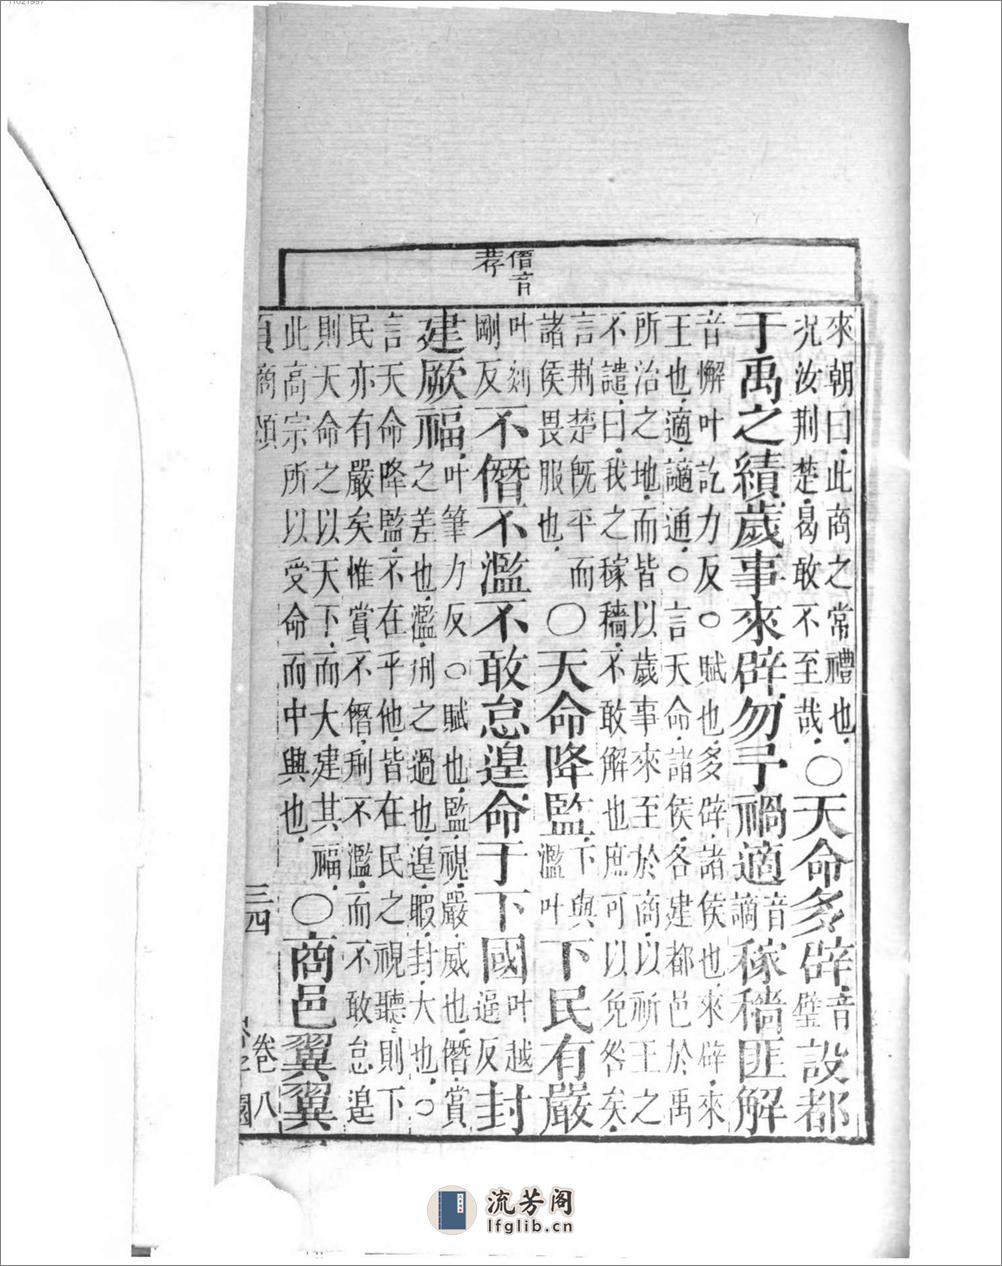 僭音
荐
來朝曰此商之常禮也
况汝荆楚曷敢不至哉○天命多辟音璧設都
于禹之績歲事來辟勿予禍適音謫稼穡匪解
音懈叶訖力反○賦也多辟諸侯也來辟來
王也適謫通○言天命諸侯各建都邑於禹
所治之地而皆以歲事來至於商以祈王之
不譴曰我之稼穡不敢解也庶可以免咎矣
言荆楚既平而
諸侯畏服也○天命降監下與濫叶下民有嚴
叶剡剛反不僭不濫不敢怠遑命于下國叶越逼反封
建厥福叶筆力反○賦也監視嚴威也僭賞
之差也濫刑之過也遑暇封大也○
言天命降監不在乎他皆在民之視聽則下
民亦有嚴矣惟賞不僭刑不濫而不敢怠遑
則天命之以天下而大建其福
此高宗所以受命而中興也○商邑翼翼
商頌
三四
卷八
流芳阁
lfglib.cn
11021997